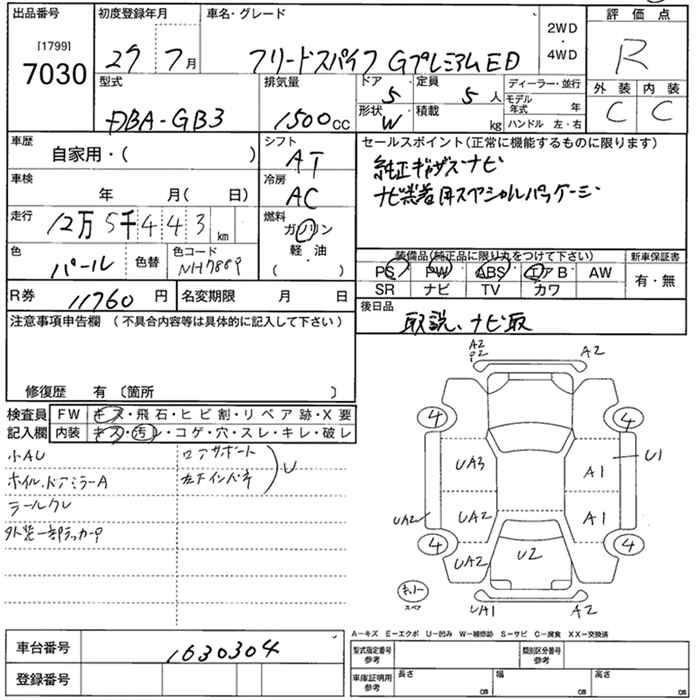 出品番号
[1799]
7030
初度登録年月
27 7月
車名・グレード
フリードスパイク GプレミアムED
2WD
・
4WD
評価点
R
外装 内装
C C
型式
DBA-GB3
排気量
1500cc
ドア 5
定員 5人
形状 W
積載 kg
ディーラー・並行
モデル年式 年
ハンドル 左・右
車歴
自家用・( )
シフト
AT
車検
年 月( 日)
冷房
AC
走行
12万5千443km
燃料
ガソリン
軽・油
( )
色
パール
色替
色コード
NH788P
セールスポイント(正常に機能するものに限ります)
純正ギャザズナビ
ナビ装着用スペシャルパッケージ
装備品(純正品に限り丸をつけて下さい)
PS PW ABS エアB AW
SR ナビ TV カワ
新車保証書
有・無
R券 11760円
名変期限 月 日
後日品
取説、ナビ取
注意事項申告欄(不具合内容等は具体的に記入して下さい)
修復歴 有〔箇所 〕
検査員
記入欄
FW キズ・飛石・ヒビ割・リペア跡・X要
内装 キズ・汚レ・コゲ・穴・スレ・キレ・破レ
小AU
ホイル、ドアミラーA
ラールクレ
外装一部タッカP
コアサポート
左下インパネ
U
A2
P2
A2
4 4
UA3 A1 U1
UA2 UA2 A1
4 4
UA2 U2
スペア
UA1 A2
A-キズ E-エクボ U-凹み W-補修跡 S-サビ C-腐食 XX-交換済
車台番号 1630304
登録番号
型式指定番号
参考
類別区分番号
参考
車庫証明用
参考
長さ cm
幅 cm
高さ cm